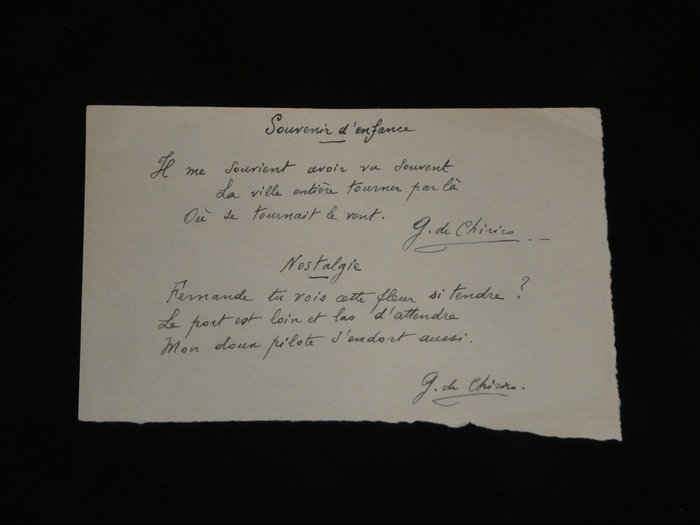 Souvenir d'enfance
Il me souvient avoir vu souvent
La ville entière tourner par là
Où se tournait le vent.
G. de Chirico
Nostalgie
Fernande tu vois cette fleur si tendre ?
Le port est loin et las d'attendre
Mon doux pilote s'endort aussi.
G. de Chirico.